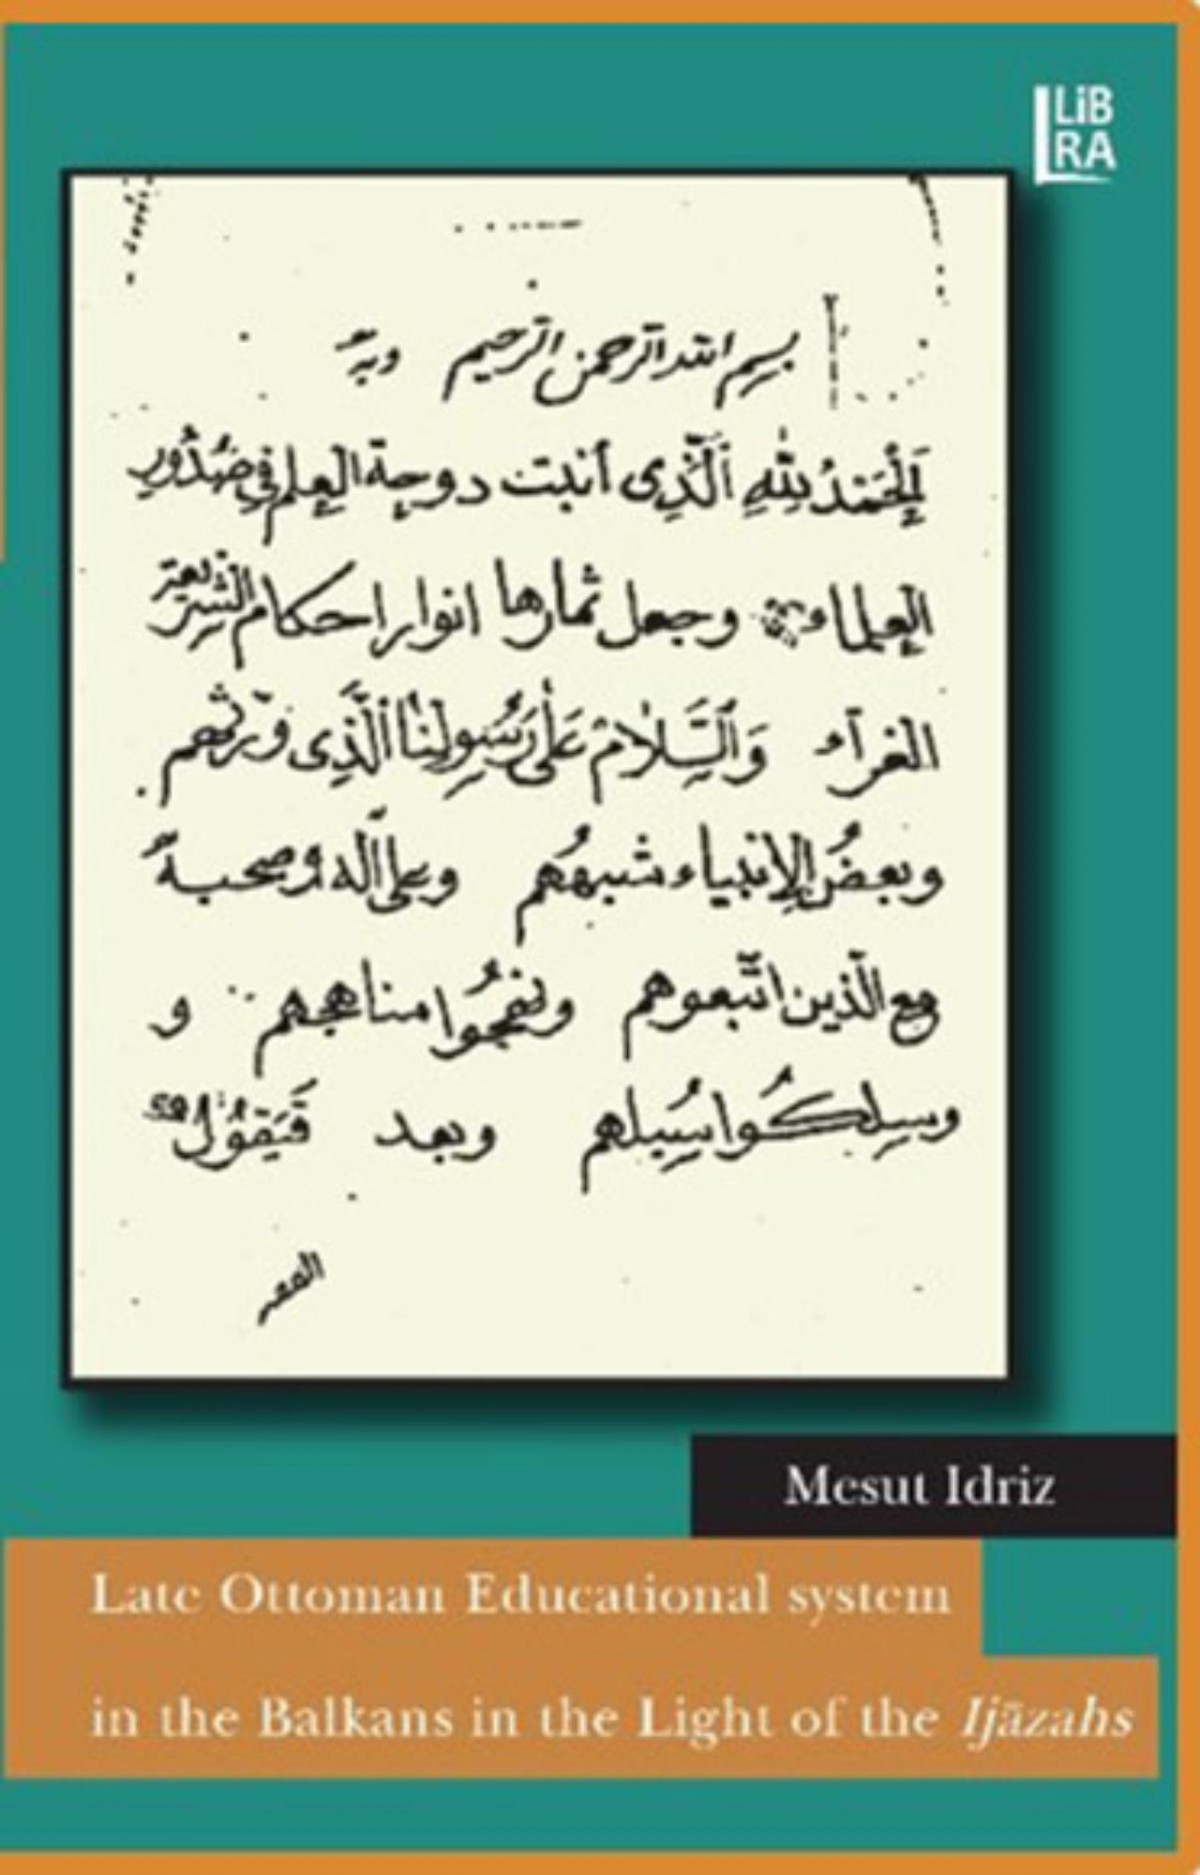 LiB
RA
بسم الله الرحمن الرحيم وبه
اَلْحَمْدُ لِلّٰهِ اَلَّذِى أنبتت دوحة العِلم فى صُدُورِ
العِلماء وجعل ثمارها انوار احكام الشريعة
الغرآء وَالسَّلَامُ عَلٰى رَسُولِنَا الَّذِى ورّثهم
وبعضُ الانبياء شبههُم وعلى آله وصحبه
مع الّذين اتّبعوهم ونهجُوا مناهجهم و
وسلِكُوا سُبيلهم وبعد فَيَقُولُ
الفقير
Mesut Idriz
Late Ottoman Educational system
in the Balkans in the Light of the Ijāzahs